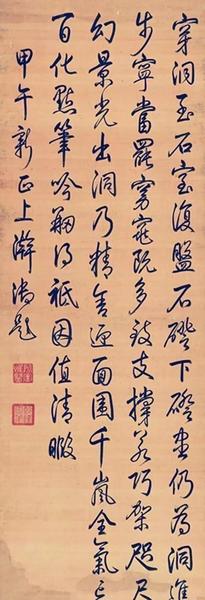 穿洞至石室復盤石磴下磴盡仍為洞進
步寧當罷窈窕既多致支撐若巧架咫尺
幻景光出洞乃精舍迎面圍千嵐全氣
百化點筆吟翻得祗因值清暇
甲午新正上澣御題